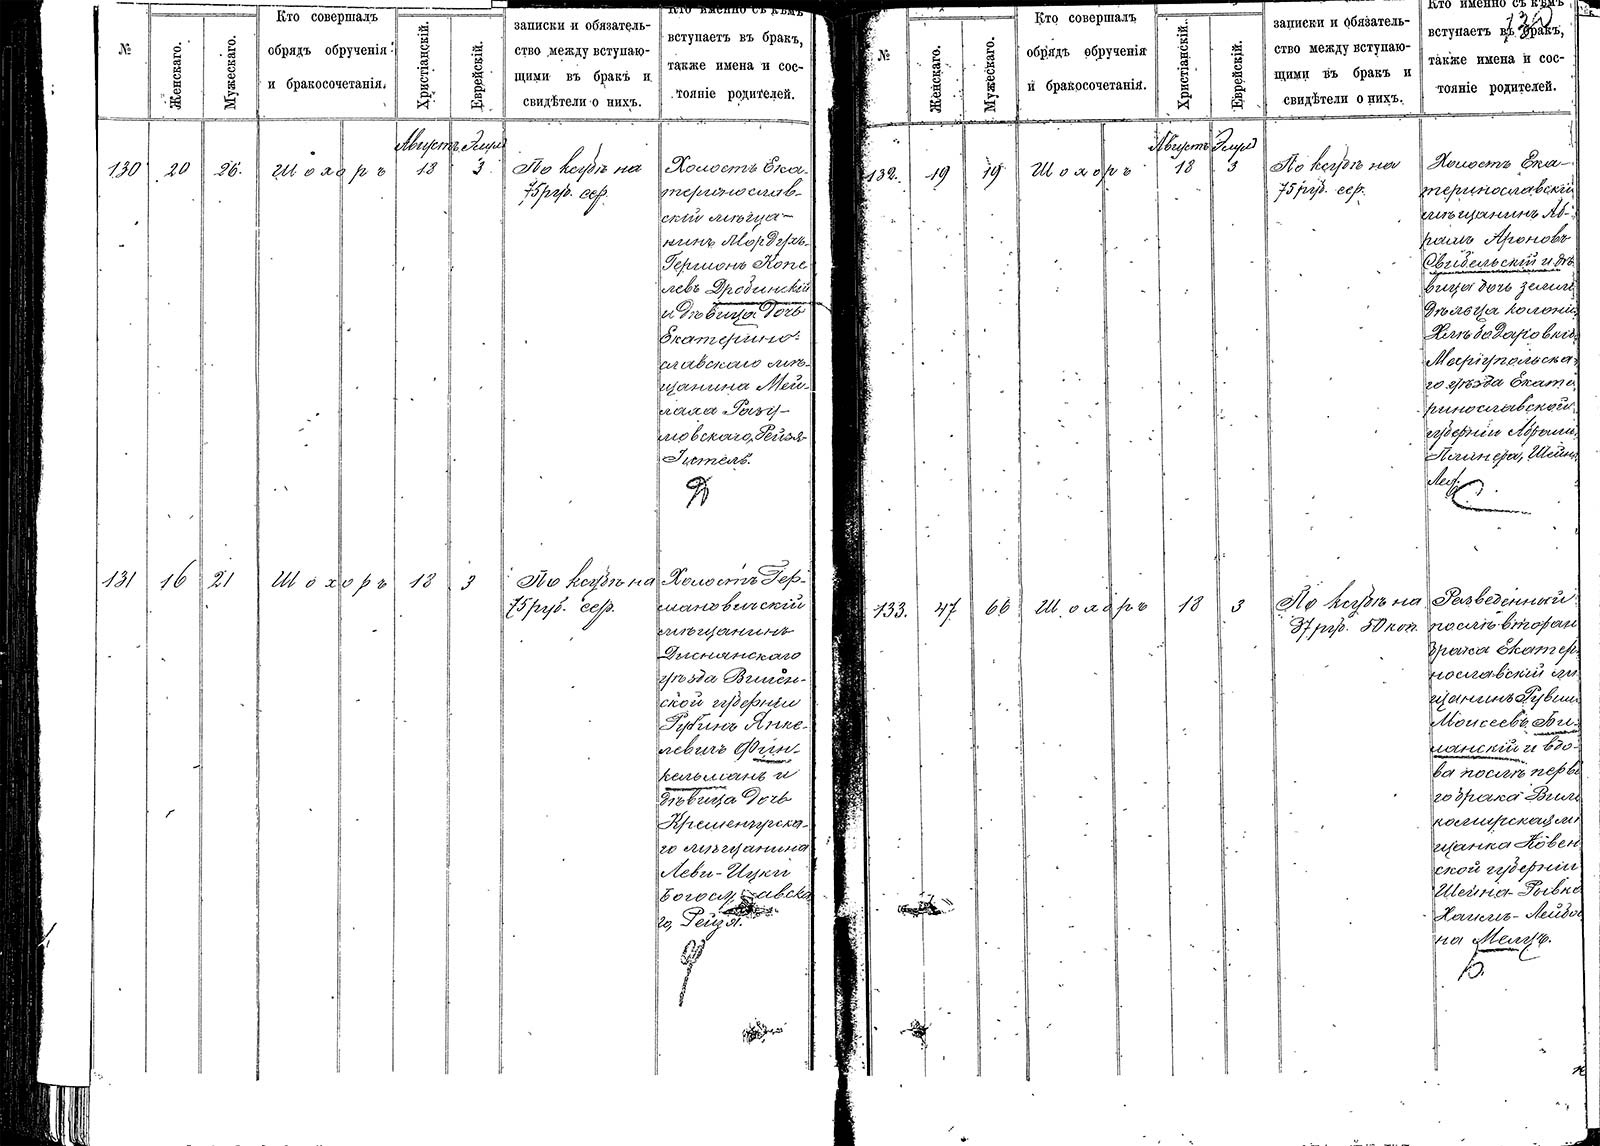 №
Женскаго.
Мужескаго.
Кто совершалъ
обрядъ обрученія
и бракосочетанія.
Христіанскій.
Еврейскій.
записки и обязатель-
ство между вступаю-
щими въ бракъ и
свидѣтели о нихъ.
Кто именно съ кѣмъ
вступаетъ въ бракъ,
также имена и сос-
тояніе родителей.
Августъ Элулъ
130 20 26. Шохоръ 18 3
По ксубѣ на
75 руб. сер.
Холостъ Ека-
теринослав-
скій мѣща-
нинъ Мордухъ-
Гершонъ Копе-
левъ Дробинскій
и дѣвица дочь
Екатерино-
славскаго мѣ-
щанина Мей-
лаха Разу-
мовскаго, Рейзя-
Гитель.
Д
131 16 21 Шохоръ 18 3
По ксубѣ на
75 руб. сер.
Холостъ Гер-
мановичскій
мѣщанинъ
Дисненскаго
уѣзда Вилен-
ской губерніи
Рубинъ Янке-
левичъ Фин-
кельманъ и
дѣвица дочь
Кременчугска-
го мѣщанина
Леви-Ицки
Богославска-
го, Рейзя.
Ф
130
№
Женскаго.
Мужескаго.
Кто совершалъ
обрядъ обрученія
и бракосочетанія.
Христіанскій.
Еврейскій.
записки и обязатель-
ство между вступаю-
щими въ бракъ и
свидѣтели о нихъ.
Кто именно съ кѣмъ
вступаетъ въ бракъ,
также имена и сос-
тояніе родителей.
Августъ Элулъ
132. 19 19 Шохоръ 18 3
По ксубѣ на
75 руб. сер.
Холостъ Ека-
теринославскій
мѣщанинъ Аб-
рамъ Ароновъ
Свидельскій и дѣ-
вица дочь земле-
дѣльца колоніи
Хлѣбодаровки
Маріупольска-
го уѣзда Екате-
ринославской
губерніи Абрама
Плинера, Шейна
Лея.
С
133. 47. 66 Шохоръ 18 3
По ксубѣ на
37 руб. 50 коп.
Разведенный
послѣ втораго
брака Екатери-
нославскій мѣ-
щанинъ Рувин
Моисеевъ Би-
манскій и вдо-
ва послѣ перва-
го брака Вил-
комирская мѣ-
щанка Ковен-
ской губерніи
Шейна-Рывка
Хаимъ-Лейбо-
на Мелуъ.
Б.